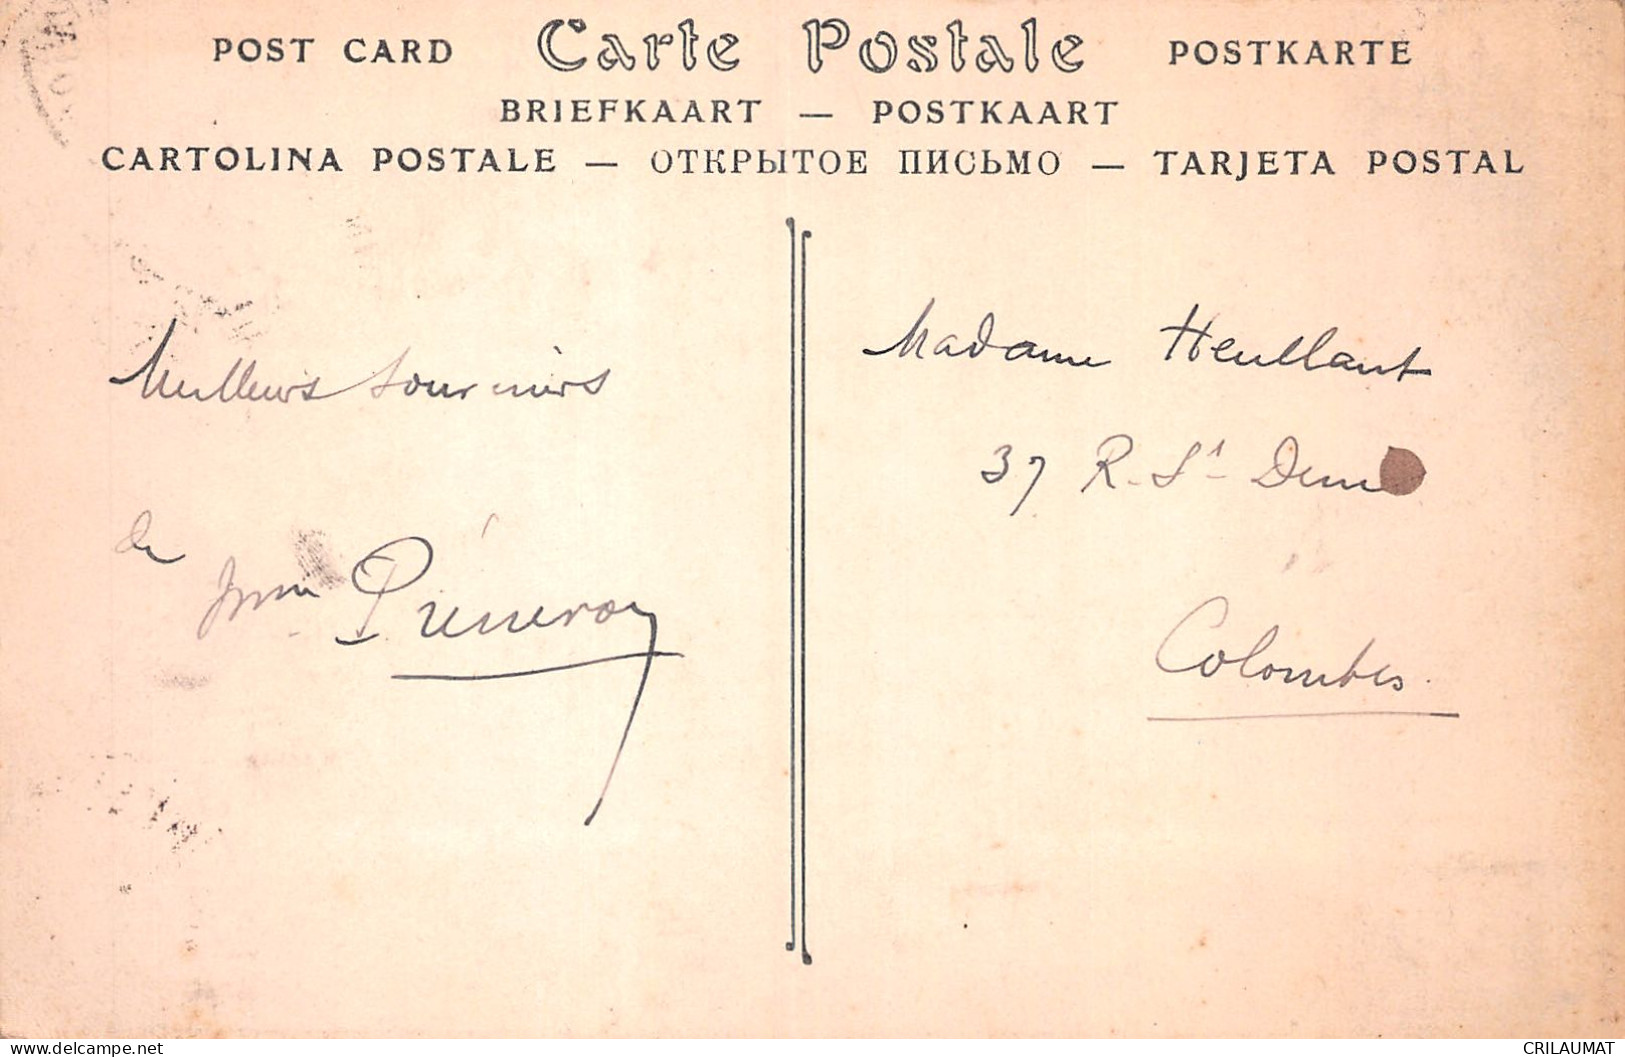 POST CARD Carte Postale POSTKARTE
BRIEFKAART — POSTKAART
CARTOLINA POSTALE — ОТКРЫТОЕ ПИСЬМО — TARJETA POSTAL
Meilleurs souvenirs
de
Madame Heullant
37 R. St Denis
Colombes.
CRILAUMAT